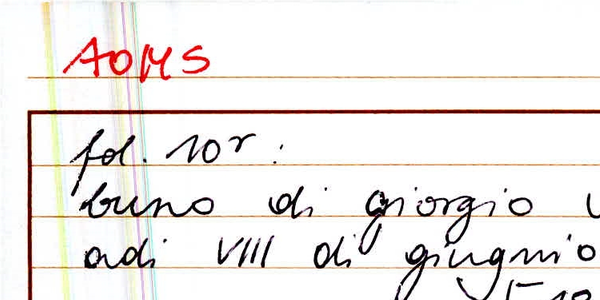 AOMS
fol. 10r:
buno di giorgio
adi VIII di giugnio